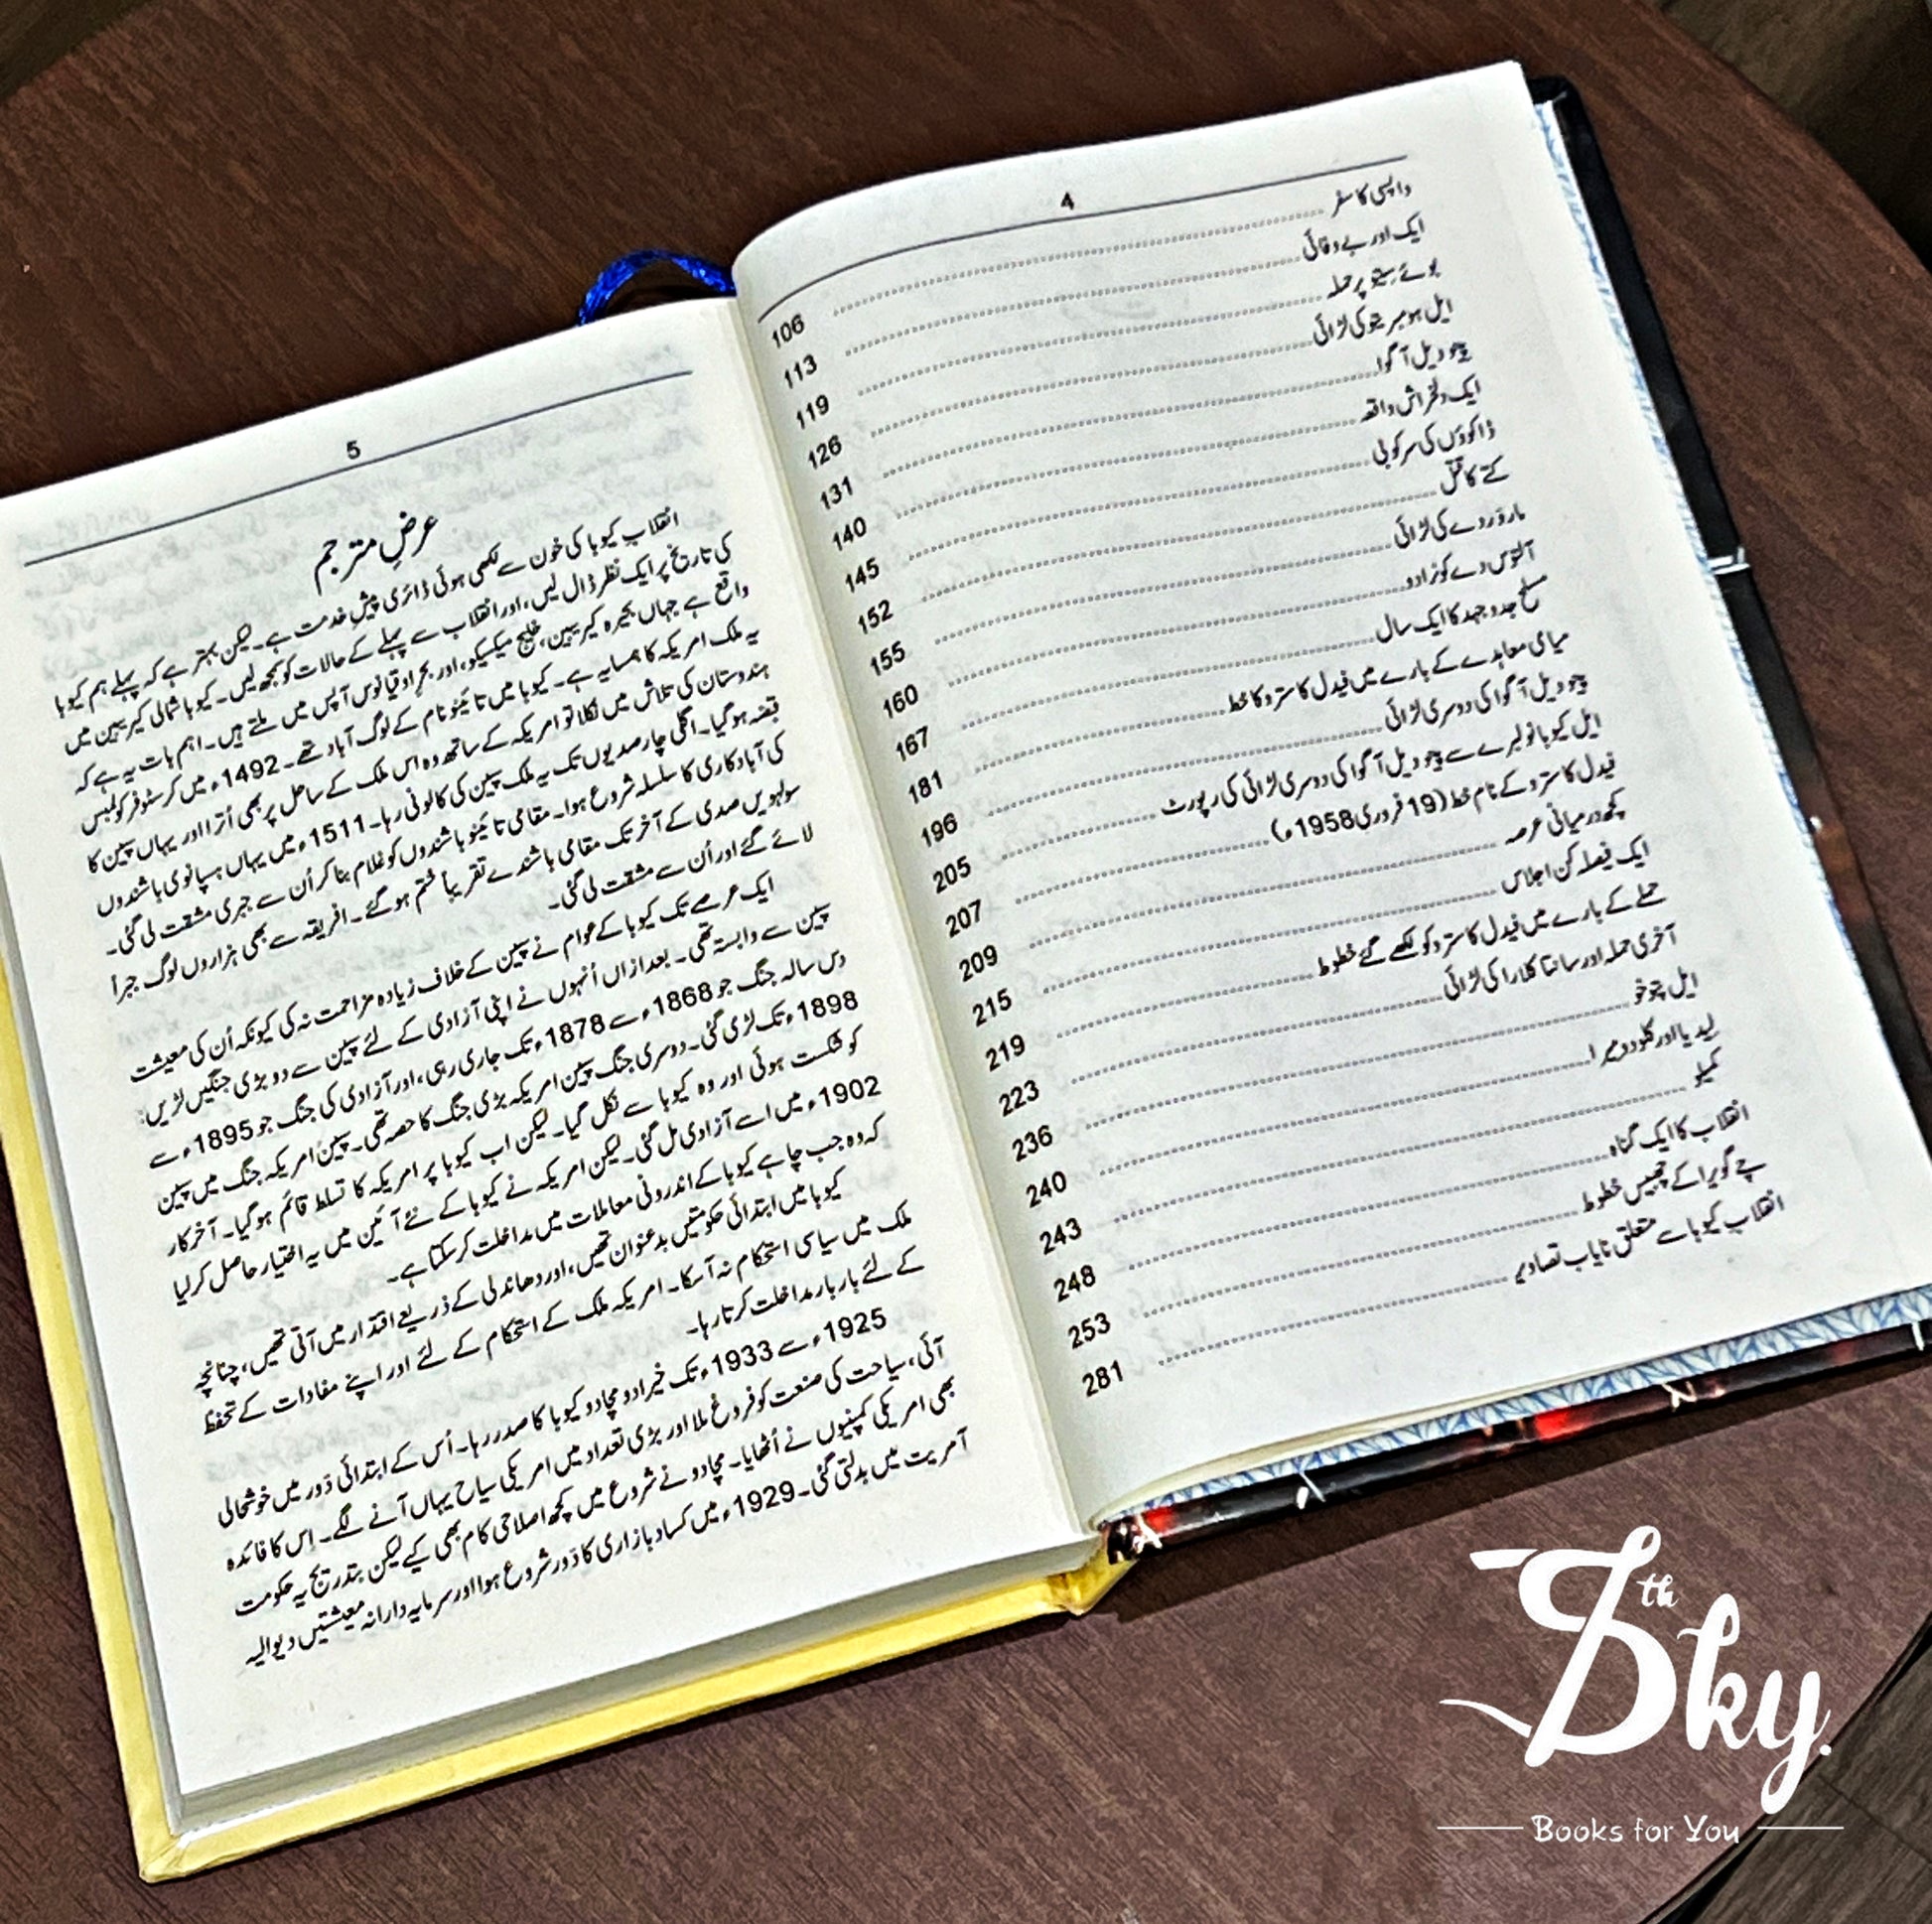 4
واپسی کا سفر 106
ایک اور بے وفائی 113
بوئے سیتو پر حملہ 119
ایل ہومبریتو کی لڑائی 126
پیو دیل آگوا 131
ایک دلخراش واقعہ 140
ڈاکوؤں کی سرکوبی 145
کتے کا قتل 152
ماروردے کی لڑائی 155
آلتوس دے کونرادو 160
مسلح جدوجہد کا ایک سال 167
میامی معاہدے کے بارے میں فیدل کاسترو کا خط 181
پیو دیل آگوا کی دوسری لڑائی 196
ایل کیوبانو لبرے سے پیو دیل آگوا کی دوسری لڑائی کی رپورٹ 205
فیدل کاسترو کے نام خط (19 فروری 1958ء) 207
کچھ درمیانی عرصہ 209
ایک فیصلہ کن اجلاس 215
حملے کے بارے میں فیدل کاسترو کو لکھے گئے خطوط 219
آخری حملہ اور سانتا کلارا کی لڑائی 223
ایل پتوخو 236
لیدیا اور کلودومیرا 240
کمیلو 243
انقلاب کا ایک گناہ 248
چے گویرا کے چھبیس خطوط 253
انقلاب کیوبا سے متعلق نایاب تصاویر 281
5
عرضِ مترجم
انقلابِ کیوبا کی خون سے لکھی ہوئی ڈائری پیشِ خدمت ہے۔ لیکن بہتر ہے کہ پہلے ہم کیوبا
کی تاریخ پر ایک نظر ڈال لیں، اور انقلاب سے پہلے کے حالات کو سمجھ لیں۔ کیوبا شمالی کیریبین میں
واقع ہے جہاں بحیرہ کیریبین، خلیج میکسیکو، اور بحرِ اوقیانوس آپس میں ملتے ہیں۔ اہم بات یہ ہے کہ
یہ ملک امریکہ کا ہمسایہ ہے۔ کیوبا میں تائینو نام کے لوگ آباد تھے۔ 1492ء میں کرسٹوفر کولمبس
ہندوستان کی تلاش میں نکلا تو امریکہ کے ساتھ وہ اس ملک کے ساحل پر بھی اُترا اور یہاں سپین کا
قبضہ ہو گیا۔ اگلی چار صدیوں تک یہ ملک سپین کی کالونی رہا۔ 1511ء میں یہاں ہسپانوی باشندوں
کی آباد کاری کا سلسلہ شروع ہوا۔ مقامی تائینو باشندوں کو غلام بنا کر اُن سے جبری مشقت لی گئی۔
سولہویں صدی کے آخر تک مقامی باشندے تقریباً ختم ہو گئے۔ افریقہ سے بھی ہزاروں لوگ جبراً
لائے گئے اور اُن سے مشقت لی گئی۔
ایک عرصے تک کیوبا کے عوام نے سپین کے خلاف زیادہ مزاحمت نہ کی کیونکہ اُن کی معیشت
سپین سے وابستہ تھی۔ بعد ازاں اُنہوں نے اپنی آزادی کے لئے سپین سے دو بڑی جنگیں لڑیں:
دس سالہ جنگ جو 1868ء سے 1878ء تک جاری رہی، اور آزادی کی جنگ جو 1895ء سے
1898ء تک لڑی گئی۔ دوسری جنگ سپین امریکہ بڑی جنگ کا حصہ تھی۔ سپین امریکہ جنگ میں سپین
کو شکست ہوئی اور وہ کیوبا سے نکل گیا۔ لیکن اب کیوبا پر امریکہ کا تسلط قائم ہو گیا۔ آخر کار
1902ء میں اسے آزادی مل گئی۔ لیکن امریکہ نے کیوبا کے نئے آئین میں یہ اختیار حاصل کر لیا
کہ وہ جب چاہے کیوبا کے اندرونی معاملات میں مداخلت کر سکتا ہے۔
کیوبا میں ابتدائی حکومتیں بدعنوان تھیں، اور دھاندلی کے ذریعے اقتدار میں آتی تھیں، چنانچہ
ملک میں سیاسی استحکام نہ آ سکا۔ امریکہ ملک کے استحکام کے لئے اور اپنے مفادات کے تحفظ
کے لئے بار بار مداخلت کرتا رہا۔
1925ء سے 1933ء تک خیرادو مچادو کیوبا کا صدر رہا۔ اُس کے ابتدائی دَور میں خوشحالی
آئی، سیاحت کی صنعت کو فروغ ملا اور بڑی تعداد میں امریکی سیاح یہاں آنے لگے۔ اس کا فائدہ
بھی امریکی کمپنیوں نے اُٹھایا۔ مچادو نے شروع میں کچھ اصلاحی کام بھی کیے لیکن بتدریج یہ حکومت
آمریت میں بدلتی گئی۔ 1929ء میں کساد بازاری کا دَور شروع ہوا اور سرمایہ دارانہ معیشتیں دیوالیہ
7th Sky.
Books for You